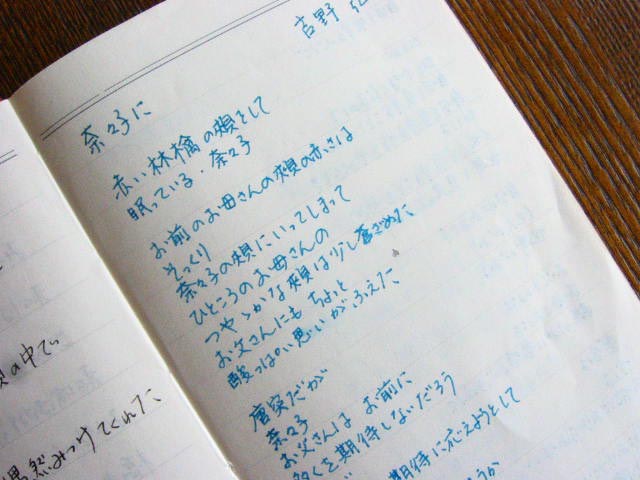 吉野
奈々子に
赤い林檎の頬をして
眠っている・奈々子
お前のお母さんの頬の赤さは
そっくり
奈々子の頬にいってしまって
ひところのお母さんの
つやゝかな頬は少し蒼ざめた
お父さんにも ちょっと
酸っぱい思いがふえた
唐突だが
奈々子
お父さんは お前に
多くを期待しないだろう
期待に応えようとして
うか
の中で
けてくれた